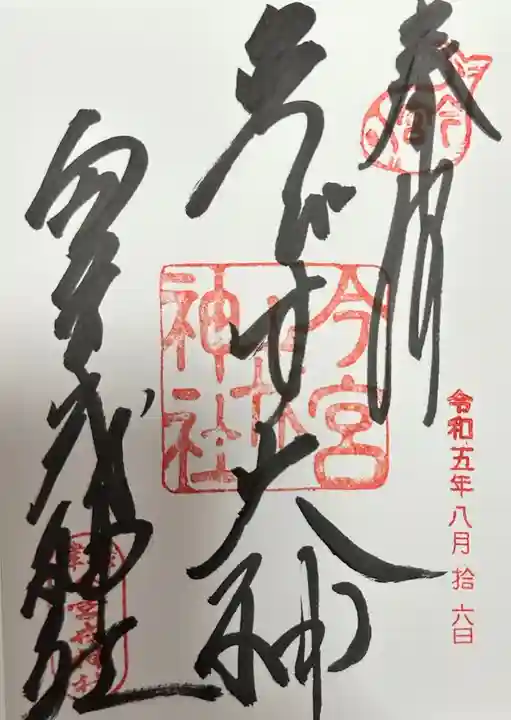 奉拝
令和五年八月拾六日
ゑびす大神
今宮戎神社
今宮戎神社